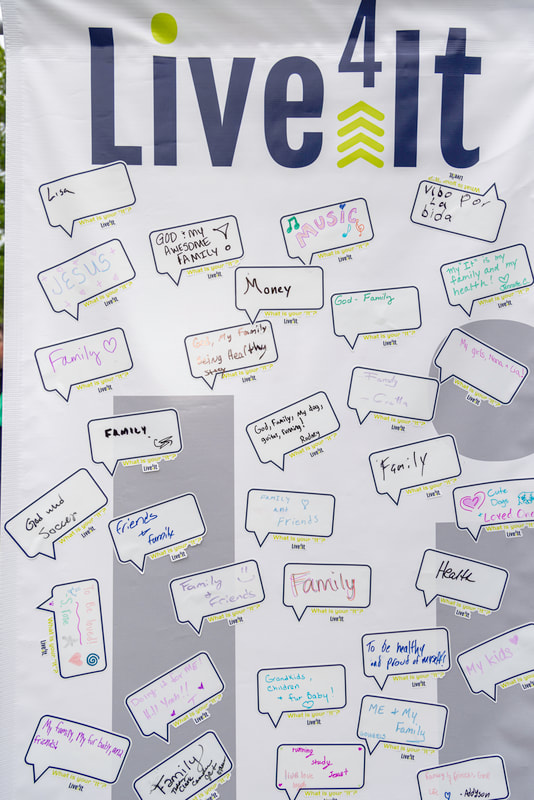 Live4It
Lisa
What is your "It"?
Live4It
GOD : my
AWESOME
FAMILY!
What is your "It"?
Live4It
MUSIC
What is your "It"?
Live4It
Vibo Por
La
bida
What is your "It"?
Live4It
JESUS
What is your "It"?
Live4It
Money
What is your "It"?
Live4It
God - Family
What is your "It"?
Live4It
My "It" is my
family and my
health!
What is your "It"?
Live4It
Family
What is your "It"?
Live4It
God, My Family
Being Healthy
What is your "It"?
Live4It
Family
What is your "It"?
Live4It
My girls,
What is your "It"?
Live4It
FAMILY
What is your "It"?
Live4It
God, Family, My dog,
guitar, running!
Rodney
What is your "It"?
Live4It
Family
What is your "It"?
Live4It
God and
Soccer
What is your "It"?
Live4It
Friends
+ family
What is your "It"?
Live4It
FAMILY
AND
Friends
What is your "It"?
Live4It
Cute
Dogs
Loved
What is your "It"?
Live4It
To be loved!
What is your "It"?
Live4It
Family
+ Friends
What is your "It"?
Live4It
Family
What is your "It"?
Live4It
Health
What is your "It"?
Live4It
Doing it for ME!
What is your "It"?
Live4It
Grandkids,
children
+ fur Baby!
What is your "It"?
Live4It
To be healthy
and proud of myself!
What is your "It"?
Live4It
My kids
What is your "It"?
My family, My fur baby, and
friends
What is your "It"?
Live4It
Family
What is your "It"?
ME & My
Family
What is your "It"?
Live4It
running
study
live love
What is your "It"?
Live4It
Family, friends, God
- Addyson